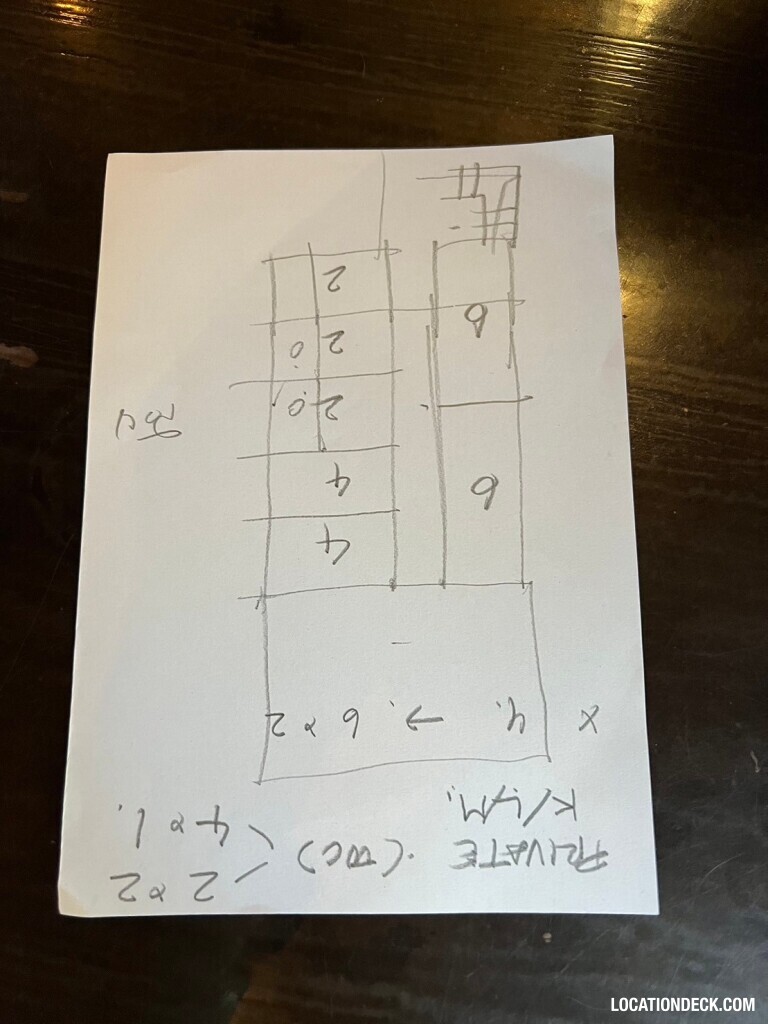 2 x 2
PRIVATE (WC) < 4 x 1.
x 4. → 6 x 2
4
6 4
2 0
2 0
6
2
LOCATIONDECK.COM